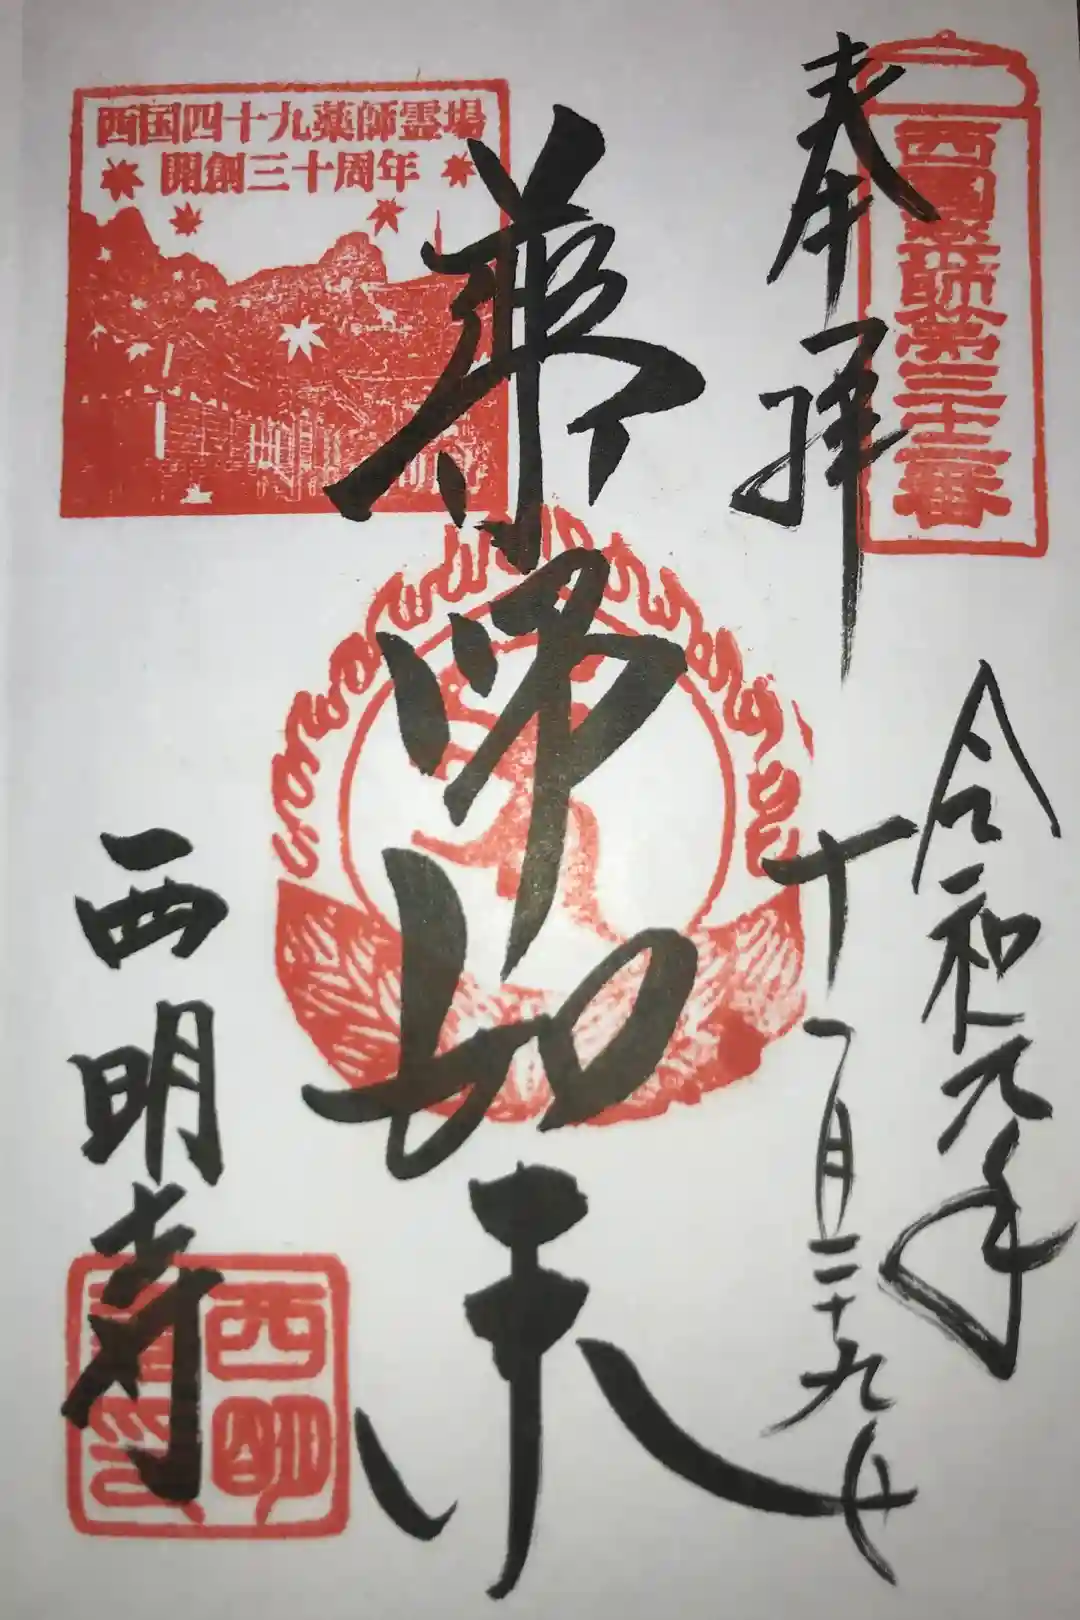 西國薬師第三十二番
奉拝
令和元年
十一月二十九日
薬師如来
西国四十九薬師霊場
開創三十周年
西明寺
西明